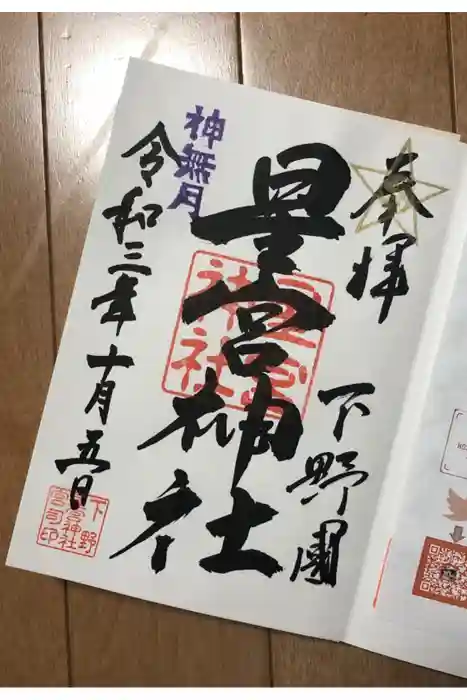 奉拝
下野國
星宮神社
星宮
神社
神無月
令和三年十月五日
下野
星宮神社
宮司印